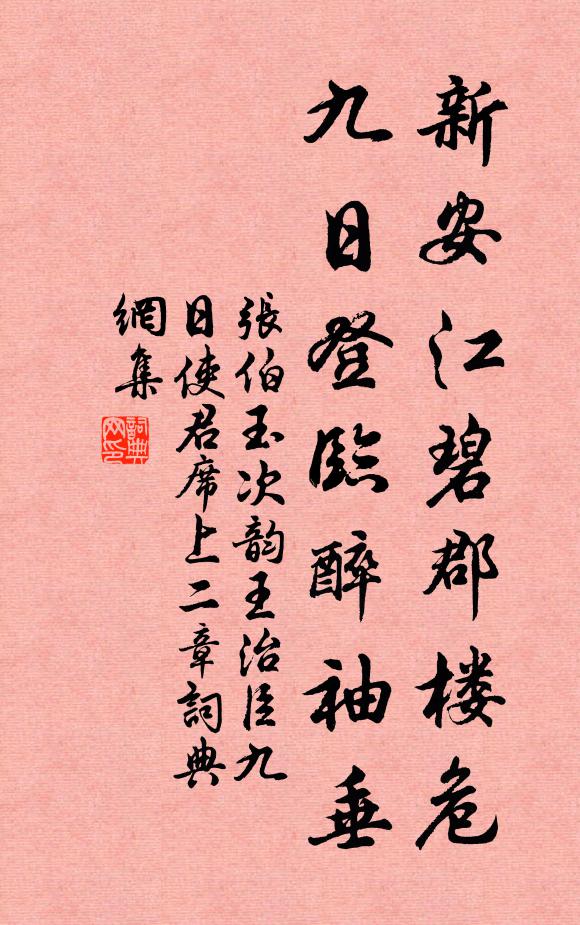 新安江碧郡楼危
九日登臨醉袖垂
張伯玉次韵王治臣九
日使君席上二章詞典
網集
詞典
网印